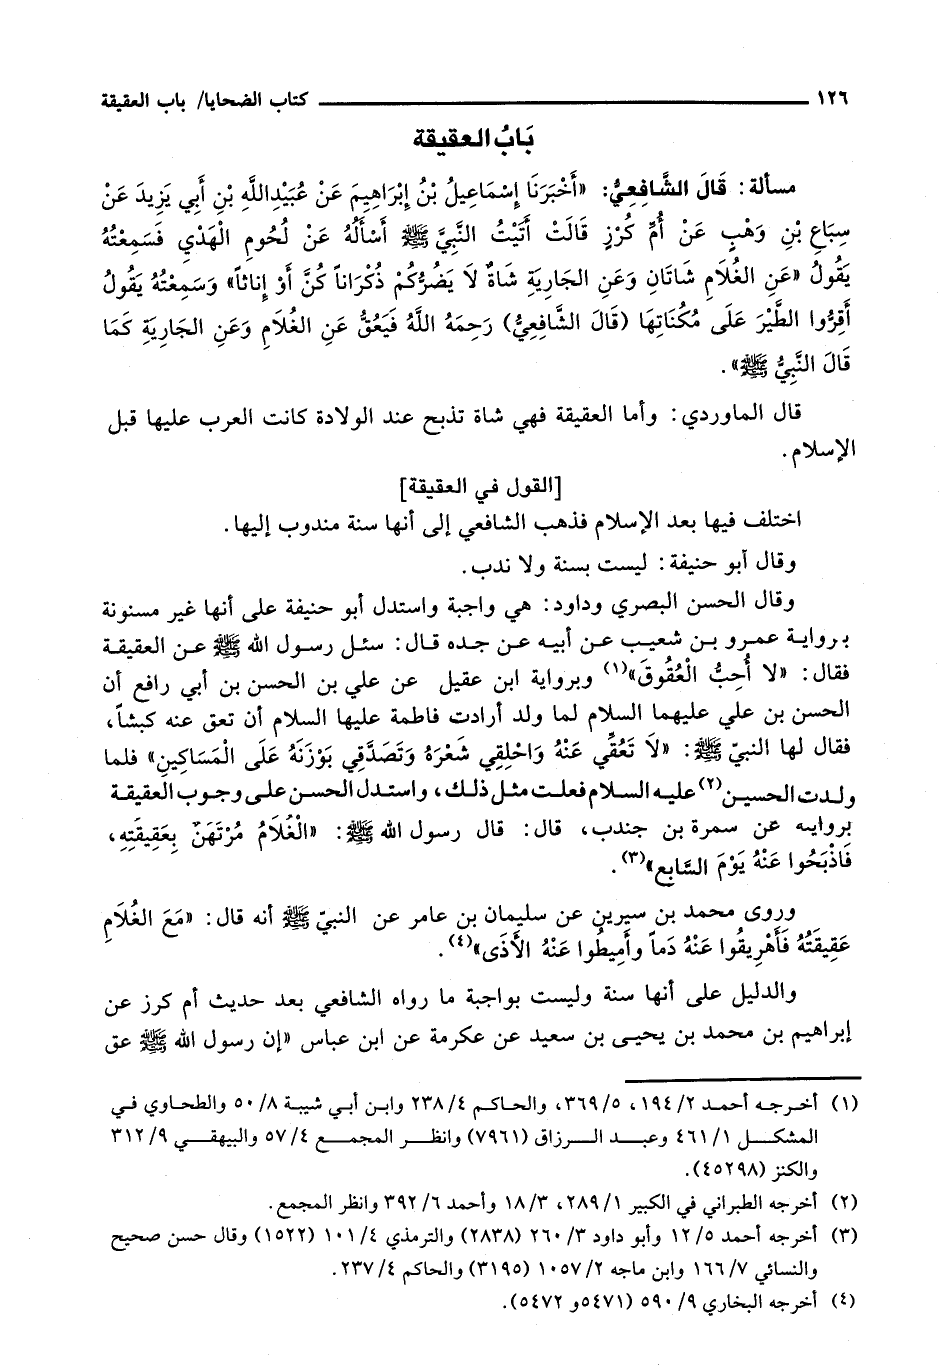 ١٢٦ كتاب الضحايا/ باب العقيقة
بَابُ العقيقة
مسألة: قَالَ الشَّافِعِيُّ: «أَخْبَرَنَا إِسْمَاعِيلُ بْنُ إِبْرَاهِيمَ عَنْ عُبَيْدِاللَّهِ بْنِ أَبِي يَزِيدَ عَنْ
سِبَاعِ بْنِ وَهْبٍ عَنْ أُمِّ كُرْزٍ قَالَتْ أَتَيْتُ النَّبِيَّ ﷺ أَسْأَلُهُ عَنْ لُحُومِ الْهَدْيِ فَسَمِعْتُهُ
يَقُولُ «عَنِ الْغُلَامِ شَاتَانِ وَعَنِ الجَارِيَةِ شَاةٌ لَا يَضُرُّكُمْ ذُكْرَاناً كُنَّ أَوْ إِنَاثاً» وَسَمِعْتُهُ يَقُولُ
أَقِرُّوا الطَّيْرَ عَلَى مُكُنَاتِهَا (قَالَ الشَّافِعِيُّ) رَحِمَهُ اللَّهُ فَيَعُقُّ عَنِ الْغُلَامِ وَعَنِ الجَارِيَةِ كَمَا
قَالَ النَّبِيُّ ﷺ».
قال الماوردي: وأما العقيقة فهي شاة تذبح عند الولادة كانت العرب عليها قبل
الإسلام.
[القول في العقيقة]
اختلف فيها بعد الإسلام فذهب الشافعي إلى أنها سنة مندوب إليها.
وقال أبو حنيفة: ليست بسنة ولا ندب.
وقال الحسن البصري وداود: هي واجبة واستدل أبو حنيفة على أنها غير مسنونة
برواية عمرو بن شعيب عن أبيه عن جده قال: سئل رسول الله ﷺ عن العقيقة
فقال: «لا أُحِبُّ الْعُقُوقَ»(١) وبرواية ابن عقيل عن علي بن الحسن بن أبي رافع أن
الحسن بن علي عليهما السلام لما ولد أرادت فاطمة عليها السلام أن تعق عنه كبشاً،
فقال لها النبيّ ﷺ: «لَا تَعُقِّي عَنْهُ وَاحْلِقِي شَعْرَهُ وَتَصَدَّقِي بَوْزَنَهُ عَلَى الْمَسَاكِينِ» فلما
ولدت الحسين(٢) عليه السلام فعلت مثل ذلك، واستدل الحسن على وجوب العقيقة
بروايه عن سمرة بن جندب، قال: قال رسول الله ﷺ: «الْغُلَامُ مُرْتَهَنٌ بِعَقِيقَتِهِ،
فَاذْبَحُوا عَنْهُ يَوْمَ السَّابِعِ»(٣).
وروى محمد بن سيرين عن سليمان بن عامر عن النبيّ ﷺ أنه قال: «مَعَ الْغُلَامِ
عَقِيقَتُهُ فَأَهْرِيقُوا عَنْهُ دَماً وأَمِيطُوا عَنْهُ الأَذَى»(٤).
والدليل على أنها سنة وليست بواجبة ما رواه الشافعي بعد حديث أم كرز عن
إبراهيم بن محمد بن يحيى بن سعيد عن عكرمة عن ابن عباس «إن رسول الله ﷺ عق
(١) أخرجه أحمد ٢/ ١٩٤، ٥/ ٣٦٩، والحاكم ٤/ ٢٣٨ وابن أبي شيبة ٨/ ٥٠ والطحاوي في
المشكل ١/ ٤٦١ وعبد الرزاق (٧٩٦١) وانظر المجمع ٤/ ٥٧ والبيهقي ٩/ ٣١٢
والكنز (٤٥٢٩٨).
(٢) أخرجه الطبراني في الكبير ١/ ٢٨٩، ٣/ ١٨ وأحمد ٦/ ٣٩٢ وانظر المجمع.
(٣) أخرجه أحمد ٥/ ١٢ وأبو داود ٣/ ٢٦٠ (٢٨٣٨) والترمذي ٤/ ١٠١ (١٥٢٢) وقال حسن صحيح
والنسائي ٧/ ١٦٦ وابن ماجه ٢/ ١٠٥٧ (٣١٩٥) والحاكم ٤/ ٢٣٧.
(٤) أخرجه البخاري ٩/ ٥٩٠ (٥٤٧١و ٥٤٧٢).